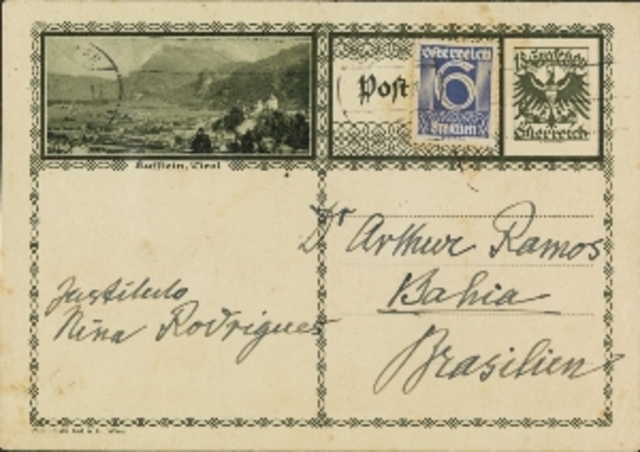 Kufstein, Tirol
Post
Österreich
6
Groschen
Österreich
Dr Arthur Ramos
Bahia
Brasilien
Instituto
Nina Rodrigues